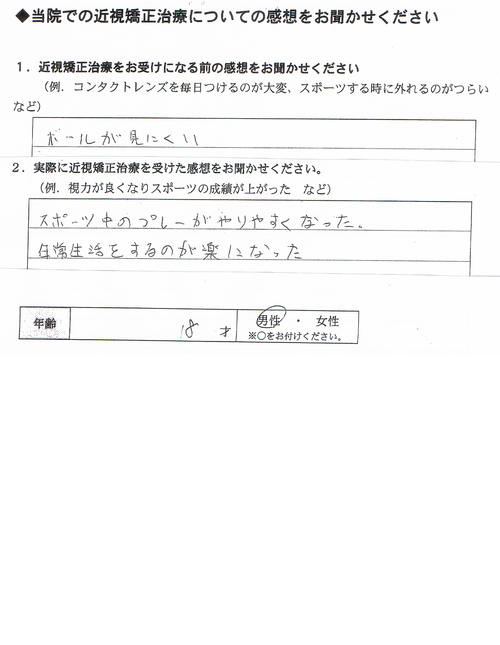 ◆当院での近視矯正治療についての感想をお聞かせください
1．近視矯正治療をお受けになる前の感想をお聞かせください
（例．コンタクトレンズを毎日つけるのが大変、スポーツする時に外れるのがつらい
など）
ボールが見にくい
2．実際に近視矯正治療を受けた感想をお聞かせください。
（例．視力が良くなりスポーツの成績が上がった　など）
スポーツ中のプレーがやりやすくなった。
日常生活をするのが楽になった
年齢 18 才 男性 ・ 女性
※〇をお付けください。